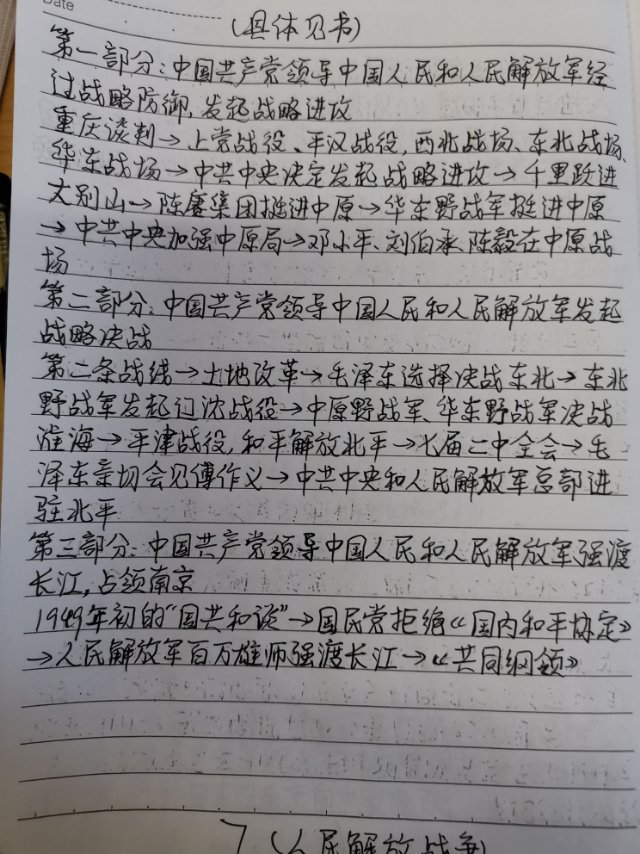 Date
(具体见书)
第一部分:中国共产党领导中国人民和人民解放军经
过战略防御,发起战略进攻
重庆谈判→上党战役、平汉战役,西北战场、东北战场、
华东战场→中共中央决定发起战略进攻→千里跃进
大别山→陈赓集团挺进中原→华东野战军挺进中原
→中共中央加强中原局→邓小平、刘伯承、陈毅在中原战
场
第二部分:中国共产党领导中国人民和人民解放军发起
战略决战
第二条战线→土地改革→毛泽东选择决战东北→东北
野战军发起辽沈战役→中原野战军、华东野战军决战
淮海→平津战役,和平解放北平→七届二中全会→毛
泽东亲切会见傅作义→中共中央和人民解放军总部进
驻北平
第三部分:中国共产党领导中国人民和人民解放军强渡
长江,占领南京
1949年初的"国共和谈"→国民党拒绝《国内和平协定》
→人民解放军百万雄师强渡长江→《共同纲领》
7(人民解放战争)